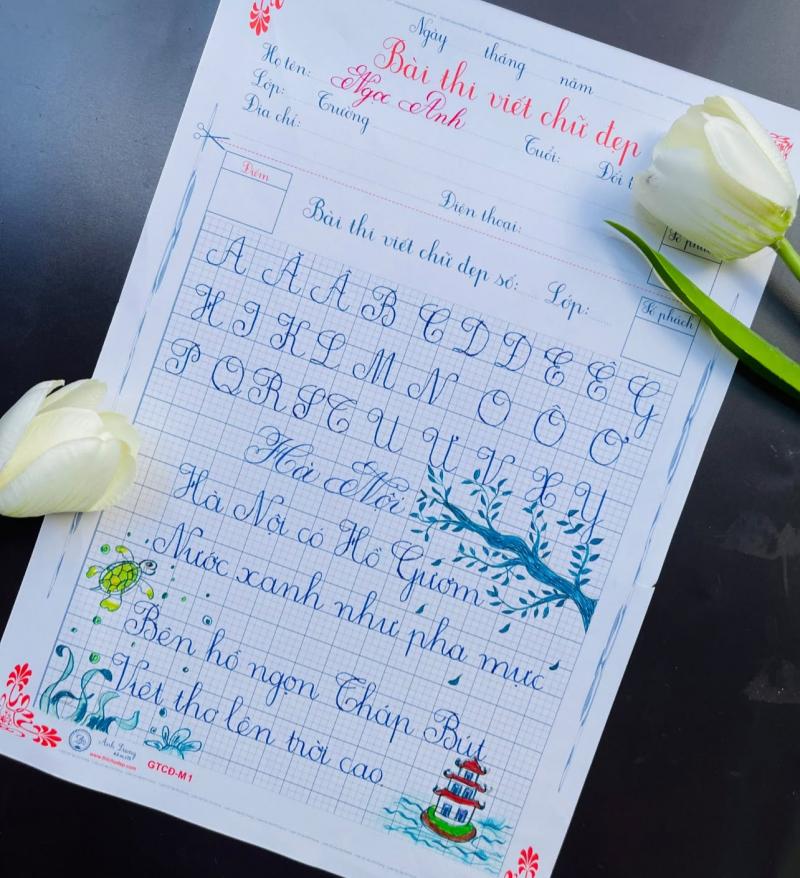 Ngày tháng năm
Bài thi viết chữ đẹp
Họ tên: Ngọc Anh
Lớp: Trường Tuổi: Đổi
Địa chỉ: Điện thoại:
Điểm
Bài thi viết chữ đẹp số: Lớp:
Số phách
Số phách
A Ă Â B C D Đ E Ê G
H I K L M N O Ô Ơ
P Q R S T U Ư V X Y
Hà Nội
Hà Nội có Hồ Gươm
Nước xanh như pha mực
Bên hồ ngọn Tháp Bút
Viết thơ lên trời cao.
Ánh Dương
GTCĐ-M1